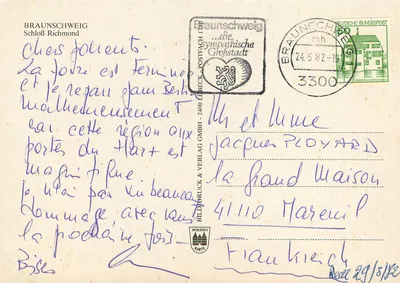 BRAUNSCHWEIG
Schloß Richmond
Chers parents.
La foire est terminée
et je repars pour Berlin
malheureusement
car cette région aux
portes du Harz est
magnifique.
je n'ai pas vu beaucoup
dommage avec vous
la prochaine fois..
Bises
BILDDRUCK & VERLAG GMBH · 2400 LÜBECK · POSTFACH
Braunschweig
...die
sympathische
Großstadt
BRAUNSCHWEIG
mh
24.5.82-19
3300
DEUTSCHE BUNDESPOST
Mr et Mme
Jacques PLOYARD
La Grand Maison
41110 Mareuil
Frankreich
29/5/82